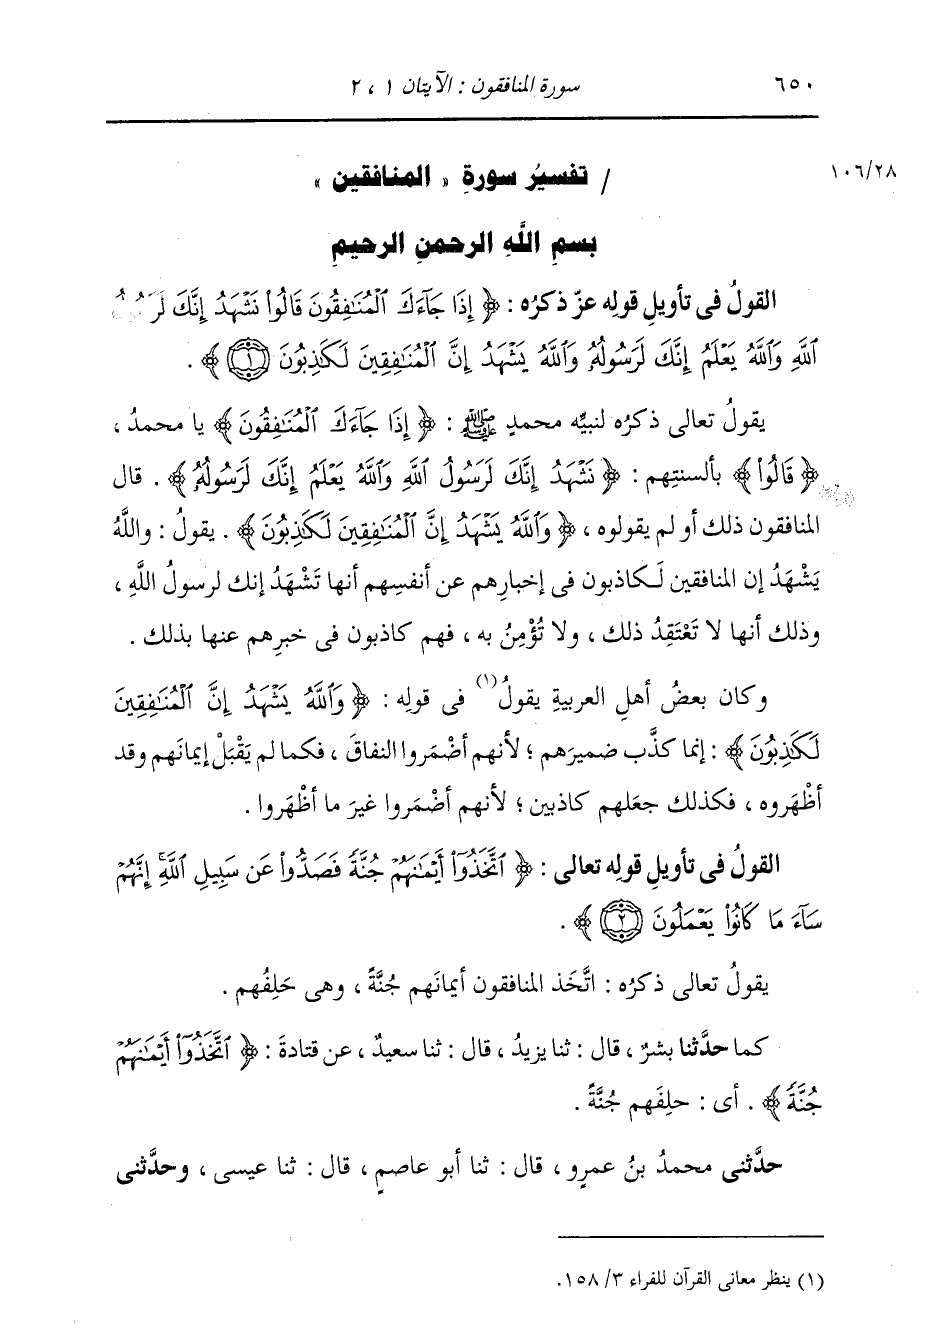 ٦٥٠ سورة المنافقون : الآيتان ١ ، ٢
١٠٦/٢٨ / تفسيُر سورةِ « المنافقين »
بسمِ اللَّهِ الرحمنِ الرحيمِ
القولُ فى تأويلِ قولِه عزّ ذكرُه : ﴿ إِذَا جَآءَكَ ٱلْمُنَٰفِقُونَ قَالُوا۟ نَشْهَدُ إِنَّكَ
ٱللَّهِ وَٱللَّهُ يَعْلَمُ إِنَّكَ لَرَسُولُهُۥ وَٱللَّهُ يَشْهَدُ إِنَّ ٱلْمُنَٰفِقِينَ لَكَٰذِبُونَ ١ ﴾ .
يقولُ تعالى ذكرُه لنبيِّه محمدٍ ﷺ : ﴿ إِذَا جَآءَكَ ٱلْمُنَٰفِقُونَ ﴾ يا محمدُ ،
﴿ قَالُوا۟ ﴾ بألسنتِهم : ﴿ نَشْهَدُ إِنَّكَ لَرَسُولُ ٱللَّهِ وَٱللَّهُ يَعْلَمُ إِنَّكَ لَرَسُولُهُۥ ﴾ . قال
المنافقون ذلك أو لم يقولوه ، ﴿ وَٱللَّهُ يَشْهَدُ إِنَّ ٱلْمُنَٰفِقِينَ لَكَٰذِبُونَ ﴾ . يقولُ : واللَّهُ
يَشْهَدُ إن المنافقين لَكاذبون فى إخبارِهم عن أنفسِهم أنها تَشْهَدُ إنك لرسولُ اللَّهِ ،
وذلك أنها لا تَعْتَقِدُ ذلك ، ولا تُؤْمِنُ به ، فهم كاذبون فى خبرِهم عنها بذلك .
وكان بعضُ أهلِ العربيةِ يقولُ(١) فى قولِه : ﴿ وَٱللَّهُ يَشْهَدُ إِنَّ ٱلْمُنَٰفِقِينَ
لَكَٰذِبُونَ ﴾ : إنما كذَّب ضميرَهم ؛ لأنهم أضْمَروا النفاقَ ، فكما لم يَقْبَلْ إيمانَهم وقد
أظْهَروه ، فكذلك جعَلهم كاذبين ؛ لأنهم أضْمَروا غيرَ ما أظْهَروا .
القولُ فى تأويلِ قولِه تعالى : ﴿ ٱتَّخَذُوٓا۟ أَيْمَٰنَهُمْ جُنَّةً فَصَدُّوا۟ عَن سَبِيلِ ٱللَّهِ ۚ إِنَّهُمْ
سَآءَ مَا كَانُوا۟ يَعْمَلُونَ ٢ ﴾ .
يقولُ تعالى ذكرُه : اتَّخَذ المنافقون أيمانَهم جُنَّةً ، وهى حَلِفُهم .
كما حدَّثنا بشرٌ ، قال : ثنا يزيدُ ، قال : ثنا سعيدٌ ، عن قتادةَ : ﴿ ٱتَّخَذُوٓا۟ أَيْمَٰنَهُمْ
جُنَّةً ﴾ . أى : حلِفَهم جُنَّةً .
حدَّثنى محمدُ بنُ عمرٍو ، قال : ثنا أبو عاصمٍ ، قال : ثنا عيسى ، وحدَّثنى
(١) ينظر معانى القرآن للفراء ٣/ ١٥٨.